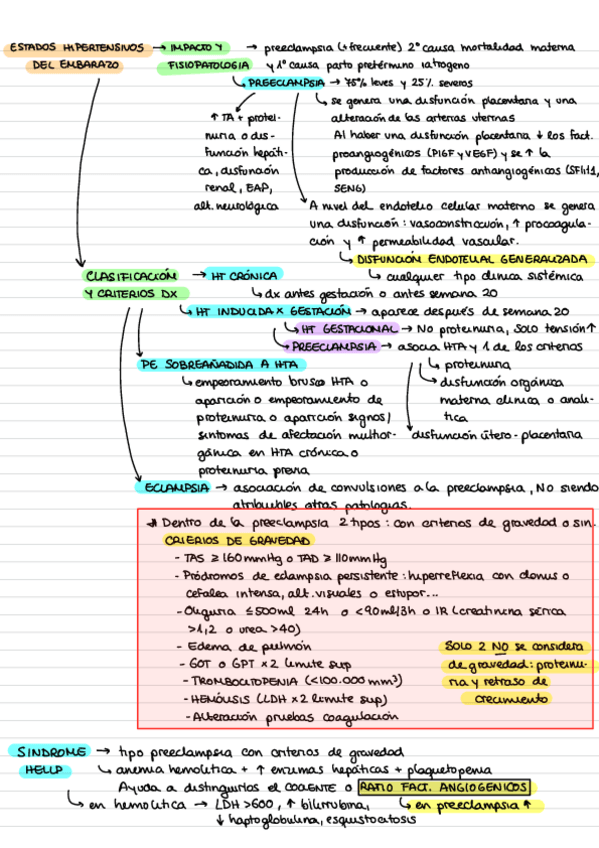 ESTADOS HIPERTENSIVOS → IMPACTO Y → preeclampsia (+ frecuente) 2ª causa mortalidad materna
DEL EMBARAZO FISIOPATOLOGIA y 1ª causa parto pretérmino iatrogeno
PREECLAMPSIA → 75% leves y 25% severos
↑ TA + protei-
nuria o dis-
función hepáti-
ca, disfunción
renal, EAP,
alt. neurológica
se genera una disfunción placentaria y una
alteración de las arterias uterinas
Al haber una disfunción placentaria ↓ los fact.
proangiogénicos (PlGF y VEGF) y se ↑ la
producción de factores antiangiogénicos (SFlt1,
SENG)
A nivel del endotelio celular materno se genera
una disfunción: vasoconstricción, ↑ procoagula-
ción y ↑ permeabilidad vascular.
DISFUNCIÓN ENDOTELIAL GENERALIZADA
cualquier tipo clínica sistémica
CLASIFICACIÓN → HT CRÓNICA
Y CRITERIOS DX dx antes gestación o antes semana 20
HT INDUCIDA X GESTACIÓN → aparece después de semana 20
HT GESTACIONAL → No proteinuria, SOLO tensión ↑
PREECLAMPSIA → asocia HTA y 1 de los criterios
proteinuria
disfunción orgánica
materna clínica o analí-
tica
disfunción útero-placentaria
PE SOBREAÑADIDA A HTA
empeoramiento brusco HTA o
aparición o empeoramiento de
proteinuria o aparición signos/
síntomas de afectación multior-
gánica en HTA crónica o
proteinuria previa
ECLAMPSIA → asociación de convulsiones a la preeclampsia, NO siendo
atribuibles otras patologías.
* Dentro de la preeclampsia 2 tipos: con criterios de gravedad o sin.
CRIERIOS DE GRAVEDAD
- TAS ≥ 160 mmHg o TAD ≥ 110 mmHg
- Pródromos de eclampsia persistente: hiperreflexia con clonus o
cefalea intensa, alt. visuales o estupor...
- Oliguria ≤ 500ml 24h o <90ml/3h o IR (creatinina sérica
>1,2 o urea >40)
- Edema de pulmón
- GOT o GPT x2 límite sup
- TROMBOCITOPENIA (<100.000 mm³)
- HEMÓLISIS (LDH x2 límite sup)
- Alteración pruebas coagulación
SOLO 2 NO se considera
de gravedad: proteinu-
ria y retraso de
crecimiento
SINDROME → tipo preeclampsia con criterios de gravedad
HELLP anemia hemolítica + ↑ enzimas hepáticas + plaquetopenia
Ayuda a distinguirlos el COCIENTE o RATIO FACT. ANGIOGENICOS
en hemolítica → LDH >600, ↑ bilirrubina, en preeclampsia ↑
↓ haptoglobulina, esquistocitosis